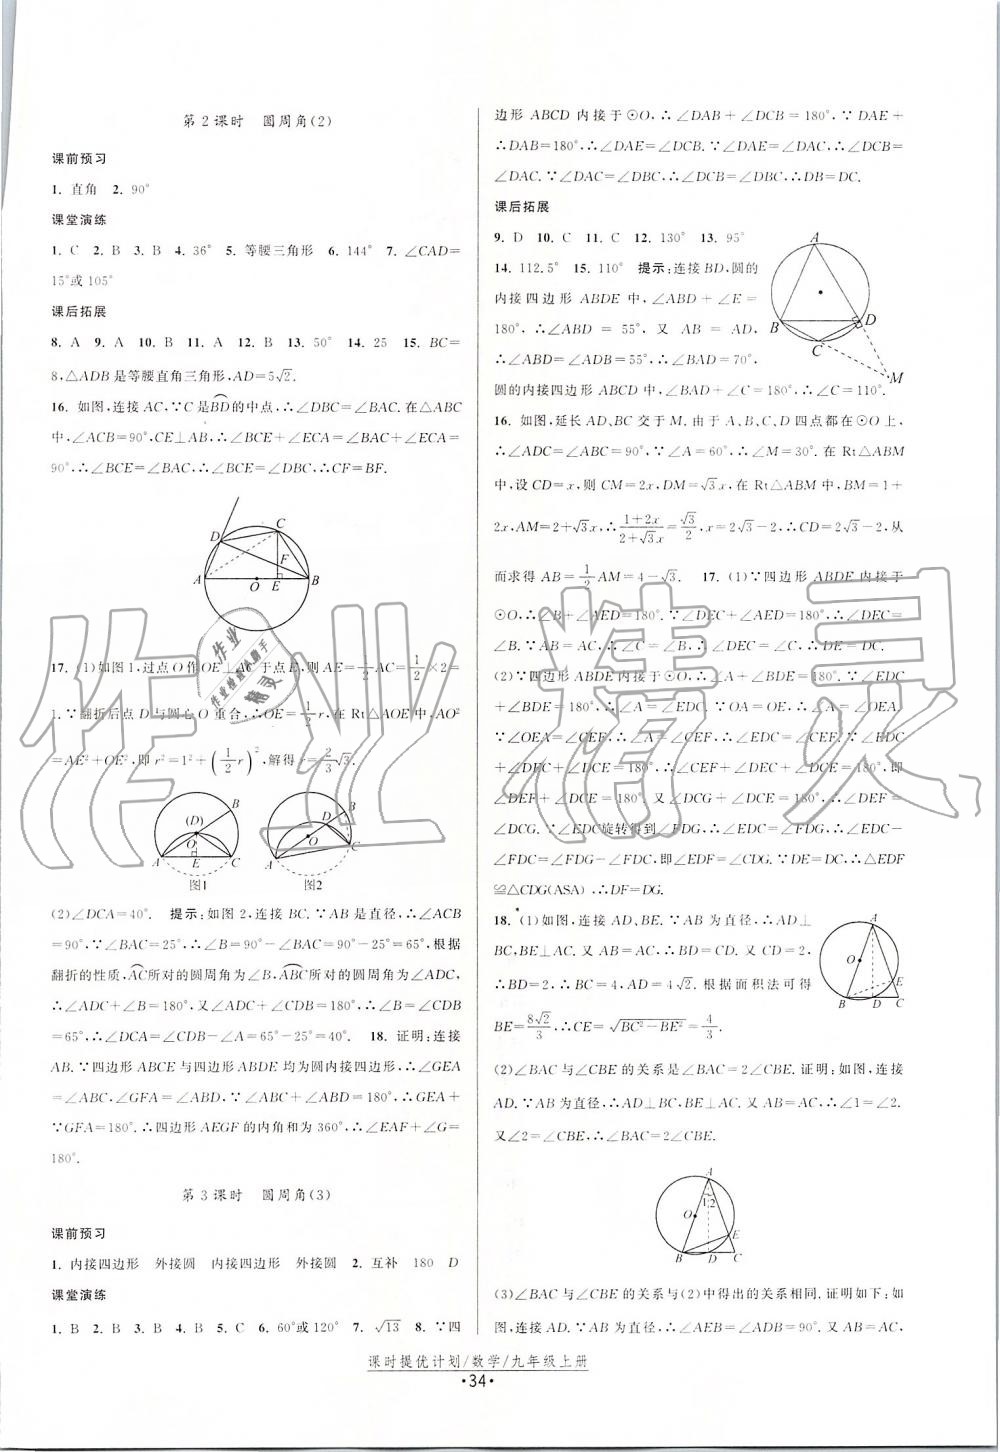 第2课时 圆周角(2)
课前预习
1. 直角 2. 90°
课堂演练
1. C 2. B 3. B 4. 36° 5. 等腰三角形 6. 144° 7. ∠CAD=
15°或105°
课后拓展
8. A 9. A 10. B 11. A 12. B 13. 50° 14. 25 15. BC=
8,△ADB是等腰直角三角形,AD=5√2.
16. 如图,连接AC,∵C是BD的中点,∴∠DBC=∠BAC.在△ABC
中,∠ACB=90°,CE⊥AB,∴∠BCE+∠ECA=∠BAC+∠ECA=
90°,∴∠BCE=∠BAC,∴∠BCE=∠DBC,∴CF=BF.
D C F A O E B
17. (1)如图1,过点O作OE⊥AC于点E,则AE=1/2AC=1/2×2=
1.∵翻折后点D与圆心O重合,∴OE=1/2r,在Rt△AOE中,AO²
=AE²+OE²,即r²=1²+(1/2r)²,解得r=2/3√3.
(D) B O A E C 图1
B D O A C 图2
(2)∠DCA=40°. 提示:如图2,连接BC.∵AB是直径,∴∠ACB
=90°,∵∠BAC=25°,∴∠B=90°-∠BAC=90°-25°=65°,根据
翻折的性质,AC所对的圆周角为∠B,ABC所对的圆周角为∠ADC,
∴∠ADC+∠B=180°,又∠ADC+∠CDB=180°,∴∠B=∠CDB
=65°,∴∠DCA=∠CDB-∠A=65°-25°=40°. 18. 证明:连接
AB.∵四边形ABCE与四边形ABDE均为圆内接四边形,∴∠GEA
=∠ABC,∠GFA=∠ABD.∵∠ABC+∠ABD=180°,∴∠GEA+
∵GFA=180°.∴四边形AEGF的内角和为360°,∴∠EAF+∠G=
180°.
第3课时 圆周角(3)
课前预习
1. 内接四边形 外接圆 内接四边形 外接圆 2. 互补 180 D
课堂演练
1. B 2. B 3. B 4. B 5. C 6. 60°或120° 7. √13 8. ∵四
边形ABCD内接于⊙O,∴∠DAB+∠DCB=180°.∵∠DAE+
∠DAB=180°,∴∠DAE=∠DCB.∵∠DAE=∠DAC,∴∠DCB=
∠DAC.∵∠DAC=∠DBC,∴∠DCB=∠DBC,∴DB=DC.
课后拓展
9. D 10. C 11. C 12. 130° 13. 95°
14. 112.5° 15. 110° 提示:连接BD,圆的
内接四边形ABDE中,∠ABD+∠E=
180°,∴∠ABD=55°,又AB=AD,
∴∠ABD=∠ADB=55°,∴∠BAD=70°.
圆的内接四边形ABCD中,∠BAD+∠C=180°,∴∠C=110°.
A B D C M
16. 如图,延长AD、BC交于M.由于A、B、C、D四点都在⊙O上,
∴∠ADC=∠ABC=90°.∵∠A=60°,∴∠M=30°.在Rt△ABM
中,设CD=x,则CM=2x,DM=√3x,在Rt△ABM中,BM=1+
2x,AM=2+√3x,∴(1+2x)/(2+√3x)=√3/2,x=2√3-2,∴CD=2√3-2,从
而求得AB=1/2AM=4-√3. 17. (1)∵四边形ABDE内接于
⊙O,∴∠B+∠AED=180°.∵∠DEC+∠AED=180°,∴∠DEC
=∠B.∵AB=AC,∴∠C=∠B,∴∠DEC=∠C,∴DE=DC.
(2)∵四边形ABDE内接于⊙O,∴∠A+∠BDE=180°.∵∠EDC
+∠BDE=180°,∴∠A=∠EDC.∵OA=OE,∴∠A=∠OEA.
∵∠OEA=∠CEF,∴∠A=∠CEF,∴∠EDC=∠CEF.∵∠EDC
+∠DEC+∠DCE=180°,∴∠CEF+∠DEC+∠DCE=180°,即
∠DEF+∠DCE=180°.又∠DCG+∠DCE=180°,∴∠DEF=
∠DCG.∵∠EDC旋转得到∠FDG,∴∠EDC=∠FDG,∴∠EDC-
∠FDC=∠FDG-∠FDC,即∠EDF=∠CDG.∵DE=DC,∴△EDF
≌△CDG(ASA),∴DF=DG.
18. (1)如图,连接AD、BE.∵AB为直径,∴AD⊥
BC,BE⊥AC.又AB=AC,∴BD=CD.又CD=2,
∴BD=2,∴BC=4,AD=4√2.根据面积法可得
BE=8√2/3,∴CE=√(BC²-BE²)=4/3.
A O E B D C
(2)∠BAC与∠CBE的关系是∠BAC=2∠CBE.证明:如图,连接
AD.∵AB为直径,∴AD⊥BC,BE⊥AC.又AB=AC,∴∠1=∠2.
又∵∠2=∠CBE,∴∠BAC=2∠CBE.
A 1 2 O E B D C
(3)∠BAC与∠CBE的关系与(2)中得出的关系相同.证明如下:如
图,连接AD.∵AB为直径,∴AD⊥BC.又AB=AC,
课时提优计划/数学/九年级上册
·34·
作业精灵
作业
作业检查小助手
精灵